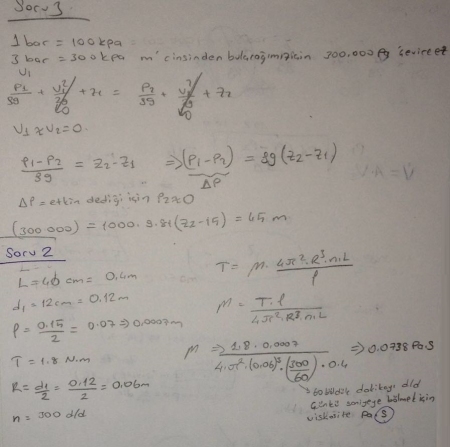 Soru 3
1 bar = 100kpa
3 bar = 300kpa m' cinsinden bulacağımız için 300.000 Pa çevirelim
V₁
P₁/ρg + V₁²/2g + z₁ = P₂/ρg + V₂²/2g + z₂
0 0
V₁ ≈ V₂ = 0
(P₁-P₂)/ρg = z₂-z₁ ⇒ (P₁-P₂) = ρg(z₂-z₁)
ΔP
ΔP = etkin dediği için P₂≈0
(300 000) = 1000. 9.81(z₂-15) = 45 m
Soru 2
L = 40 cm = 0.4m
d₁ = 12cm = 0.12m
ℓ = 0.15/2 = 0.07 ⇒ 0.0007m
T = 1.8 N.m
R = d₁/2 = 0.12/2 = 0.06m
n = 300 d/d
T = μ. 4π².R³.n.L/ℓ
μ = T.ℓ/4π².R³.n.L
μ ⇒ 1.8 . 0.0007/4.π².(0.06)³.(300/60).0.4 ⇒ 0.0738 Pa.S
60 böldük dakikayı d/d
Çünkü saniyeye bölmek için
viskozite Pa.S